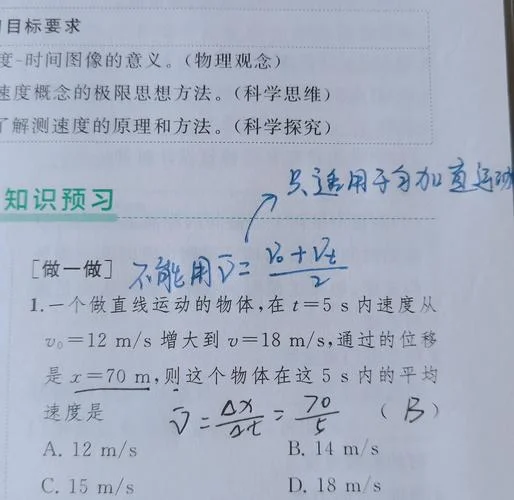 目标要求
度-时间图像的意义。(物理观念)
速度概念的极限思想方法。(科学思维)
了解测速度的原理和方法。(科学探究)
只适用于匀加直运动
知识预习
[做一做] 不能用 v̄ = (v₀+vₜ)/2
1.一个做直线运动的物体,在 t=5 s 内速度从
v₀=12 m/s 增大到 v=18 m/s,通过的位移
是 x=70 m,则这个物体在这 5 s 内的平均
速度是 v̄ = Δx/Δt = 70/5 ( B )
A. 12 m/s B. 14 m/s
C. 15 m/s D. 18 m/s